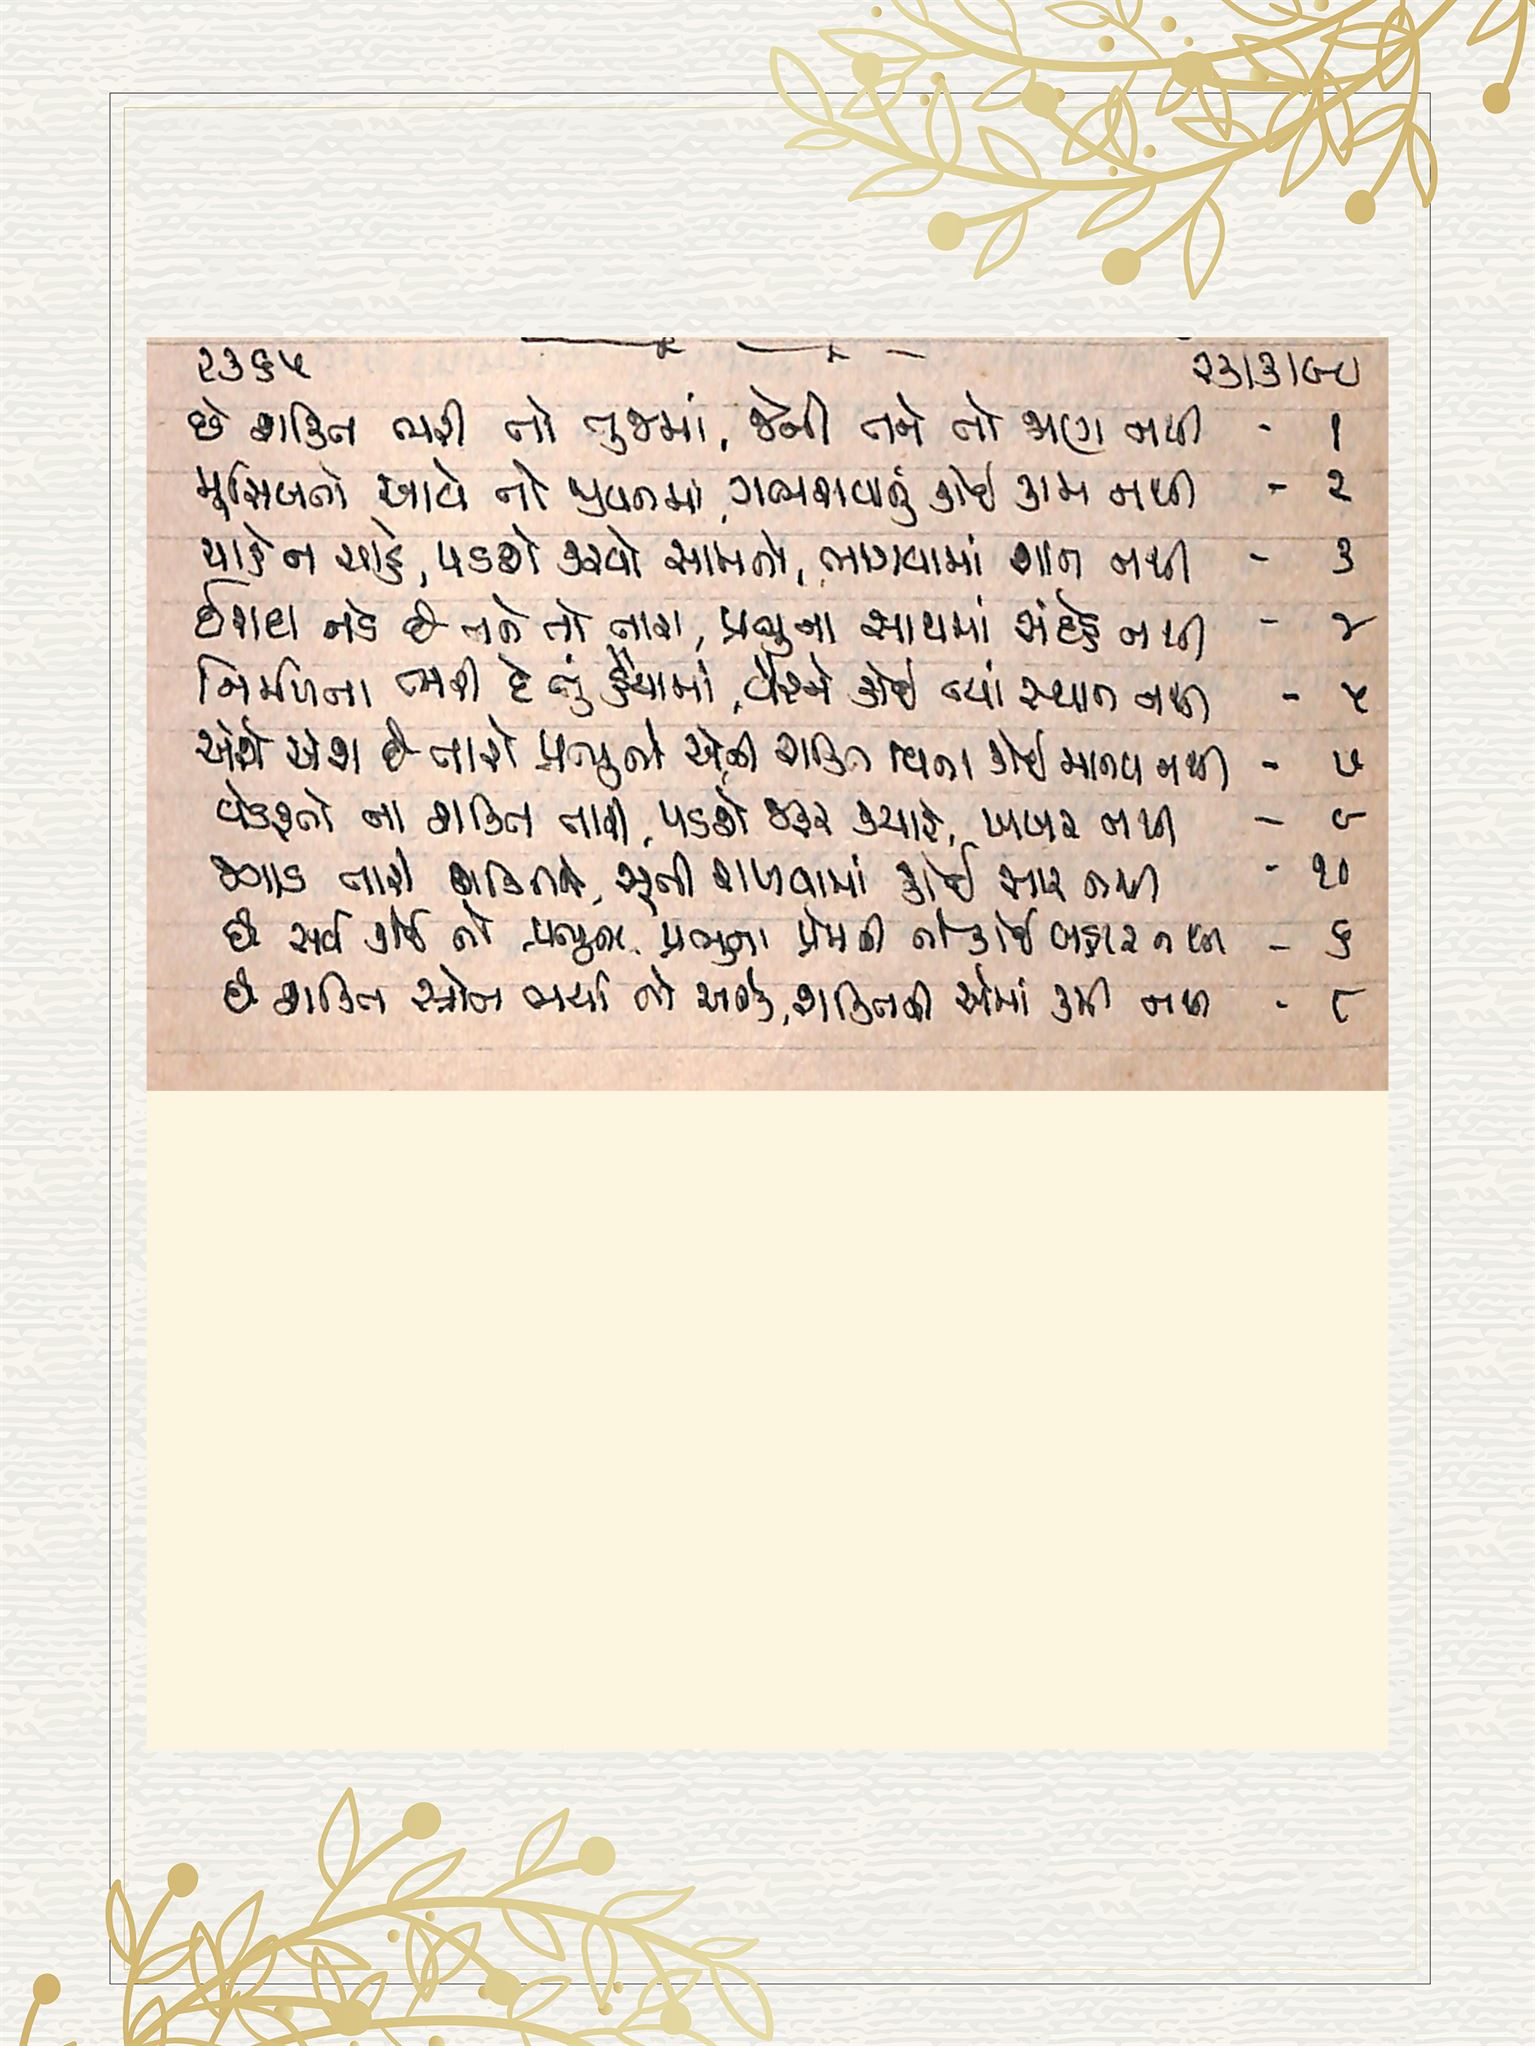 ૨૩૬૫ ૨૩/૩/૯૦
છે શક્તિ ભરી તો તુજમાં, જેની તને તો જાણ નથી - ૧
મુસિબતો આવે તો જીવનમાં, ગભરાવાનું કોઈ કામ નથી - ૨
ચાહે ન ચાહે, પડશે કરવો સામનો, ભાગવામાં શાન નથી - ૩
ઈરાદા નેક છે તને તો તારા, પ્રભુના સાથમાં સંદેહ નથી - ૪
નિર્મળતા ભરી દે તું હૈયામાં, વેરને કોઈ ત્યાં સ્થાન નથી - ૫
અંશે અંશ છે તારો પ્રભુનો એની શક્તિ વિના કોઈ માનવ નથી - ૭
વેડફતો ના શક્તિ તારી, પડશે જરૂર ક્યારે, ખબર નથી - ૯
જગાડ તારી શક્તિને, સૂતી રાખવામાં કોઈ સાર નથી - ૧૦
છે સર્વ કોઈ તો પ્રભુના, પ્રભુના પ્રેમથી તો કોઈ બહાર નથી - ૬
છે શક્તિ સ્ત્રોત ભર્યા તો અંતરે, શક્તિની એમાં કમી નથી - ૮